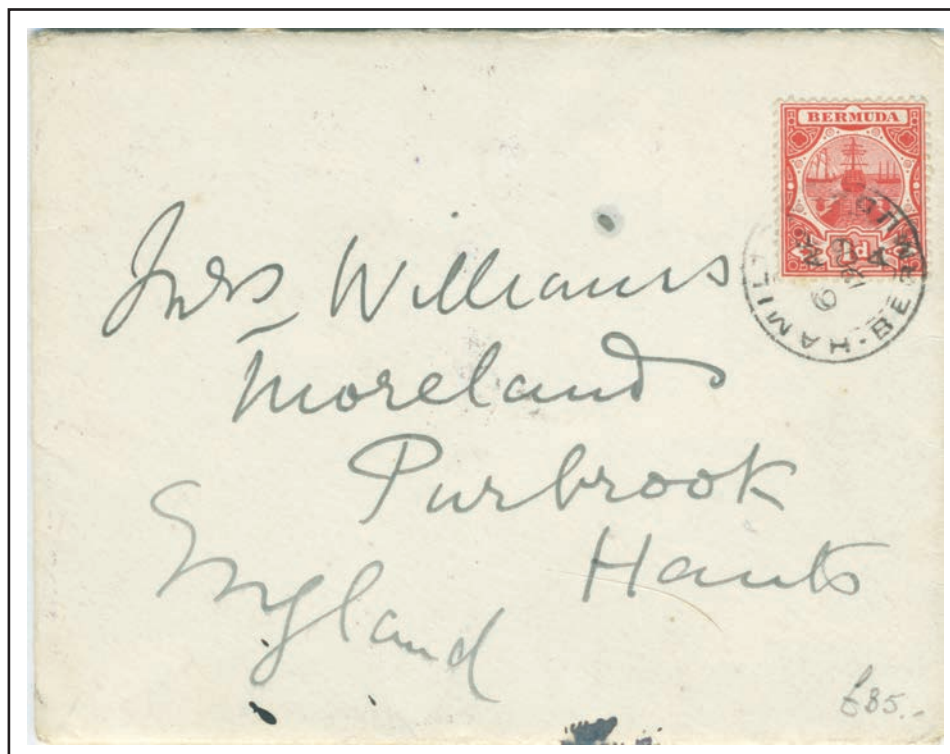 BERMUDA
1d
HAMILTON · BERMUDA
Mrs Williams
Moreland
Purbrook
Hants
England
£85.-